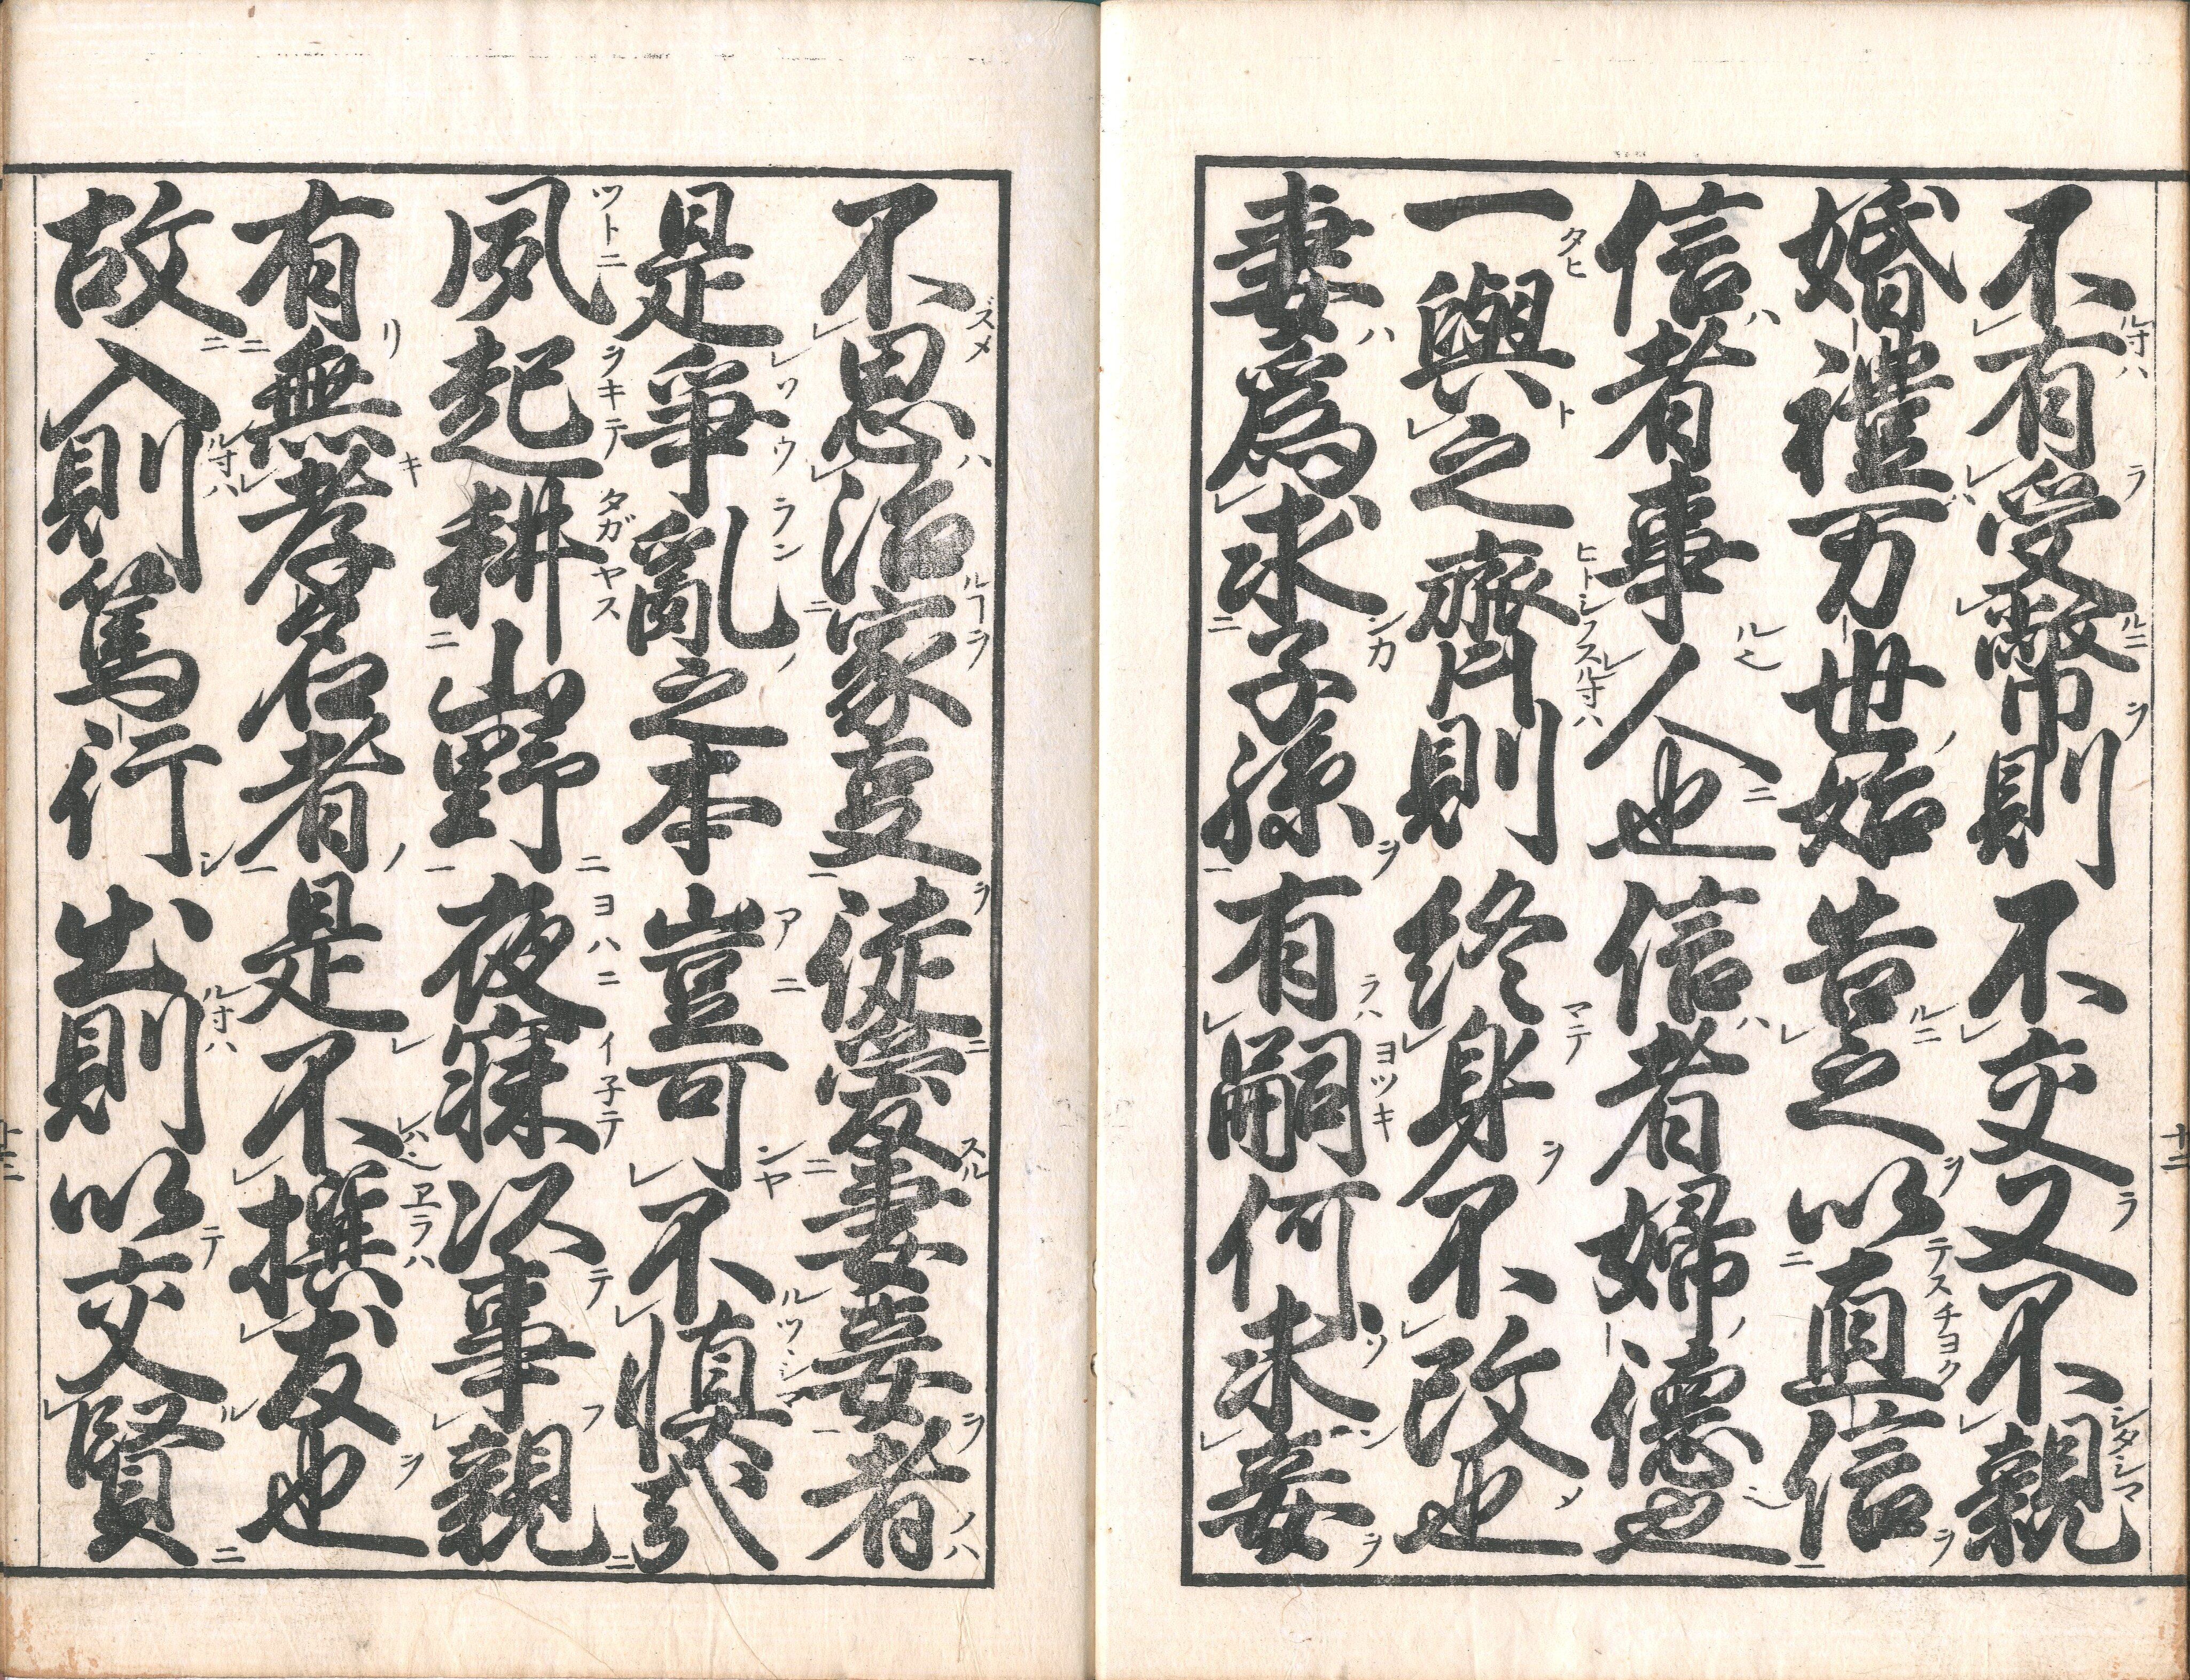 不有受幣則不交又不親
婚禮万世始告之以直信
信者事人也信者婦德也
一與之齊則終身不改也
妻爲求子孫有嗣何求妾
十二
不思治家道徒愛妻妾者
是爭亂之本豈可不慎哉
夙起耕山野夜寐以事親
有無孝名者是不撰友也
故入則篤行出則以交賢